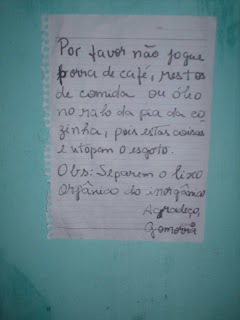 Por favor não jogue
porra de café, restos
de comida ou óleo
no ralo da pia da co
zinha, pois estas coisas
entopem o esgoto.
Obs: Separem o lixo
orgânico do inorgânico
Agradeço,